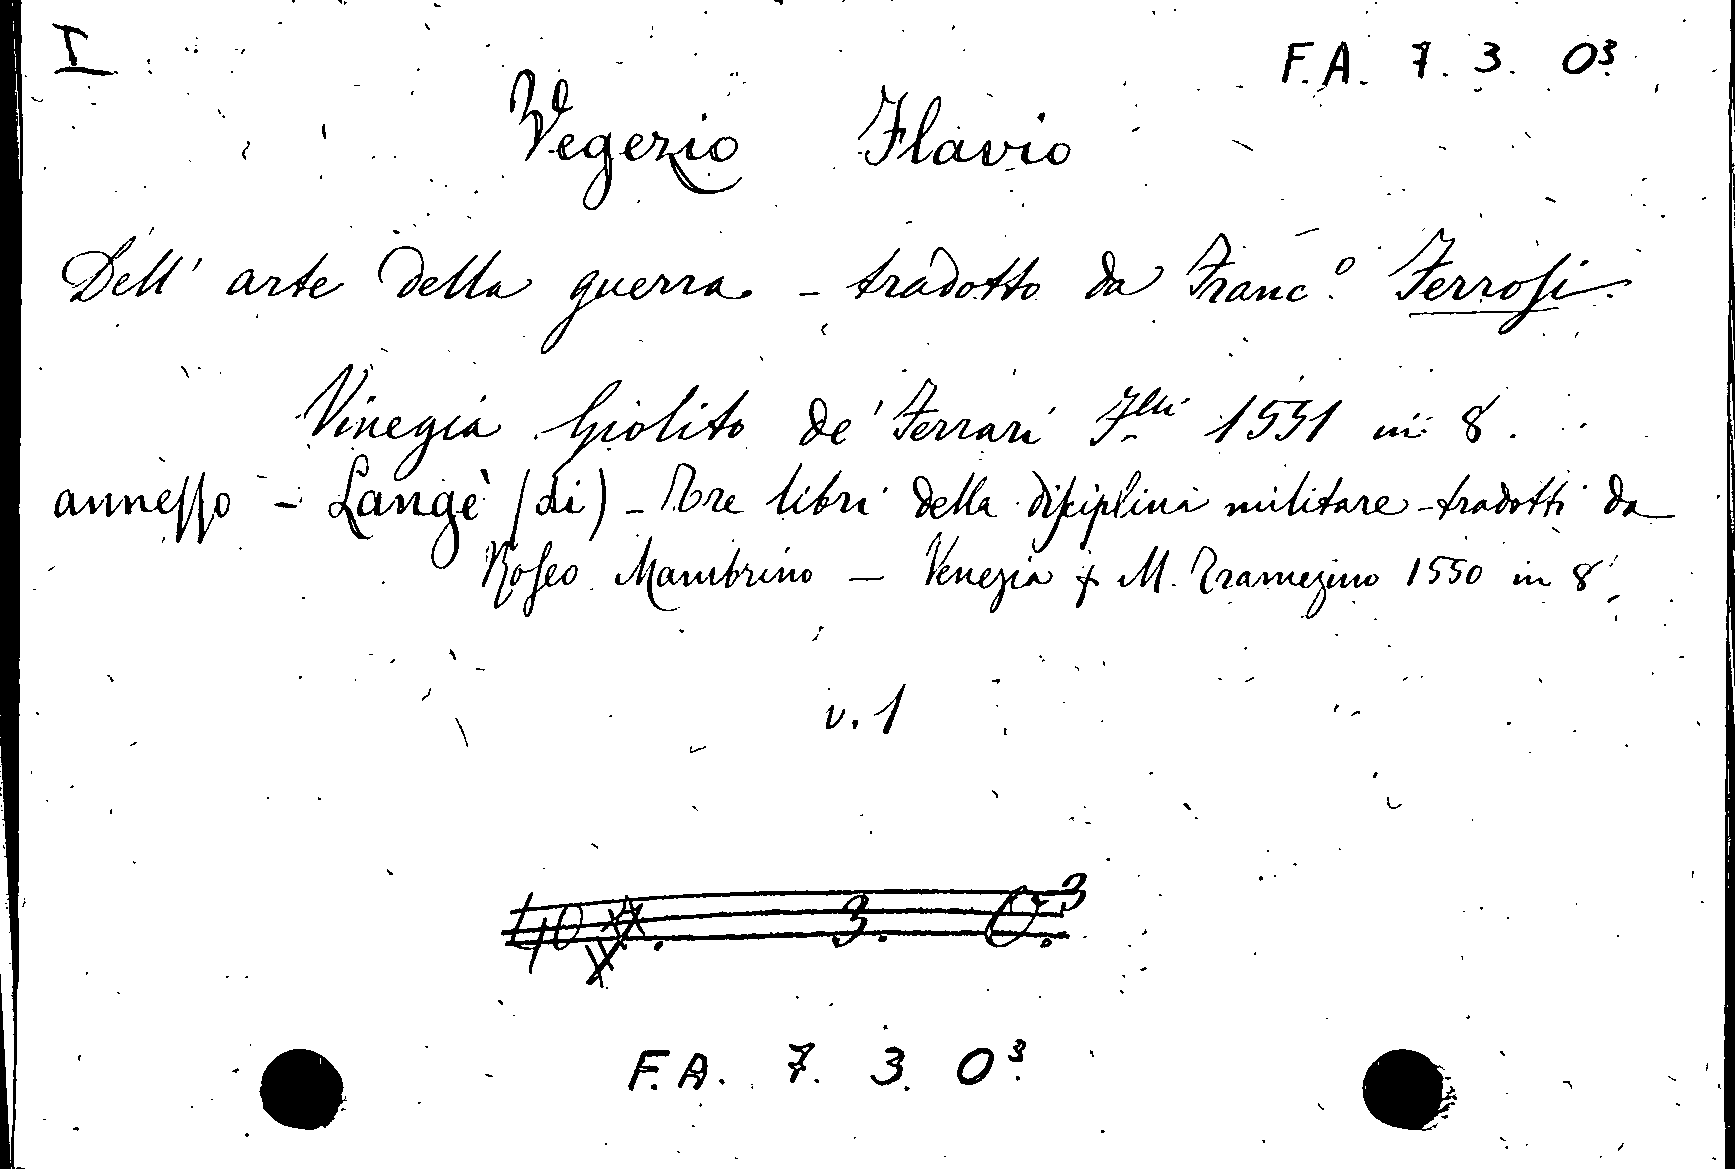 I
F. A. 7. 3. O³.
Vegezio Flavio
Dell' arte della guerra - tradotto da Franc.º Ferrosi.
Vinegia Giolito de' Ferrari Flli 1551 in 8.
annesso - Langè (di) - Tre libri della disciplina militare - tradotti da
Roseo Mambrino - Venezia M. Tramezino 1550 in 8.
v. 1
3. O³.
F. A. 7. 3. O³.